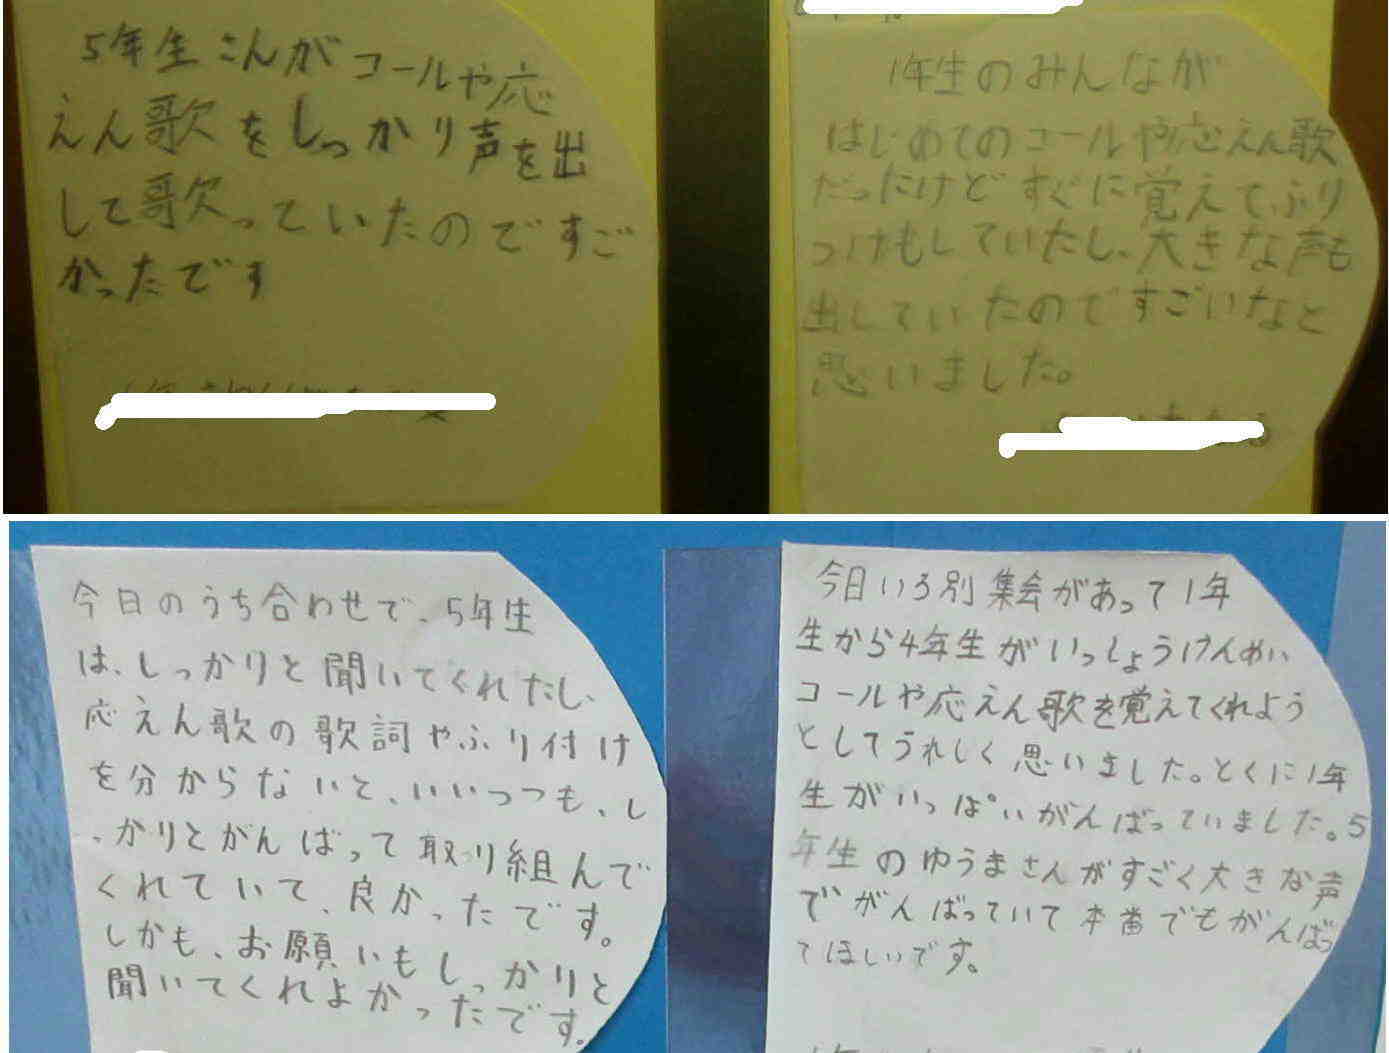 5年生さんがコールや応
えん歌をしっかり声を出
して歌っていたのですご
かったです
1年生のみんなが
はじめてのコールや応えん歌
だったけどすぐに覚えて、ふり
つけもしていたし、大きな声も
出していたのですごいなと
思いました。
今日のうち合わせで、5年生
は、しっかりと聞いてくれたし、
応えん歌の歌詞やふり付け
を分からないと、いいつつも、し
っかりとがんばって取り組んで
くれていて、良かったです。
しかも、お願いもしっかりと
聞いてくれよかったです。
今日いろ別集会があって1年
生から4年生がいっしょうけんめい
コールや応えん歌を覚えてくれよう
としてうれしく思いました。とくに1年
生がいっぱいがんばっていました。5
年生のゆうまさんがすごく大きな声
でがんばっていて本番でもがんばっ
てほしいです。